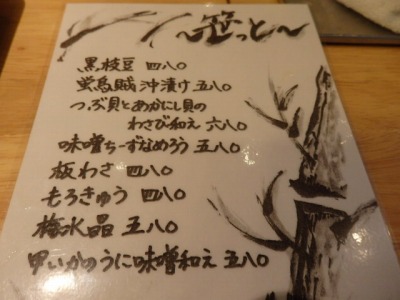 ～笹っと～
黒枝豆 四八〇
蛍烏賊沖漬け 五八〇
つぶ貝とあかにし貝の
わさび和え 六八〇
味噌ちーずなめろう 五八〇
板わさ 四八〇
もろきゅう 四八〇
梅水晶 五八〇
甲いかのうに味噌和え 五八〇